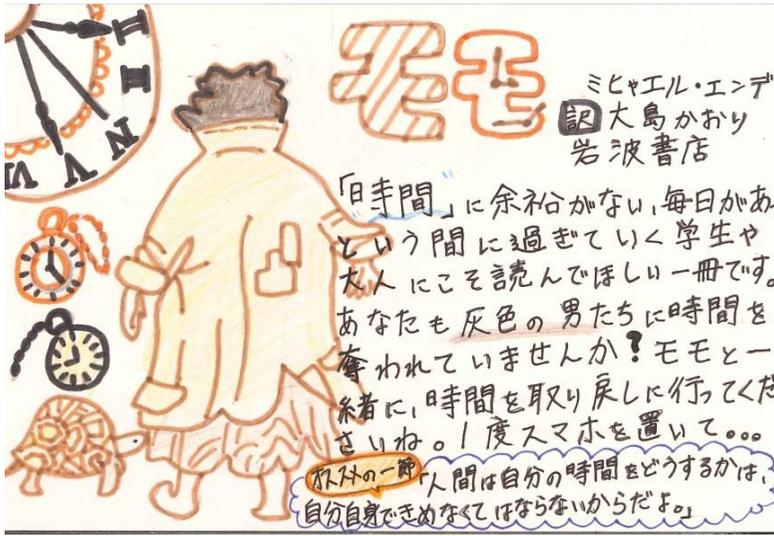 モモ
ミヒャエル・エンデ
訳 大島かおり
岩波書店
「時間」に余裕がない、毎日があっ
という間に過ぎていく学生や
大人にこそ読んでほしい一冊です。
あなたも灰色の男たちに時間を
奪われていませんか?モモと一
緒に、時間を取り戻しに行ってくだ
さいね。1度スマホを置いて...
オススメの一節
「人間は自分の時間をどうするかは、
自分自身できめなくてはならないからだよ。」
II
III
IV
V
VI